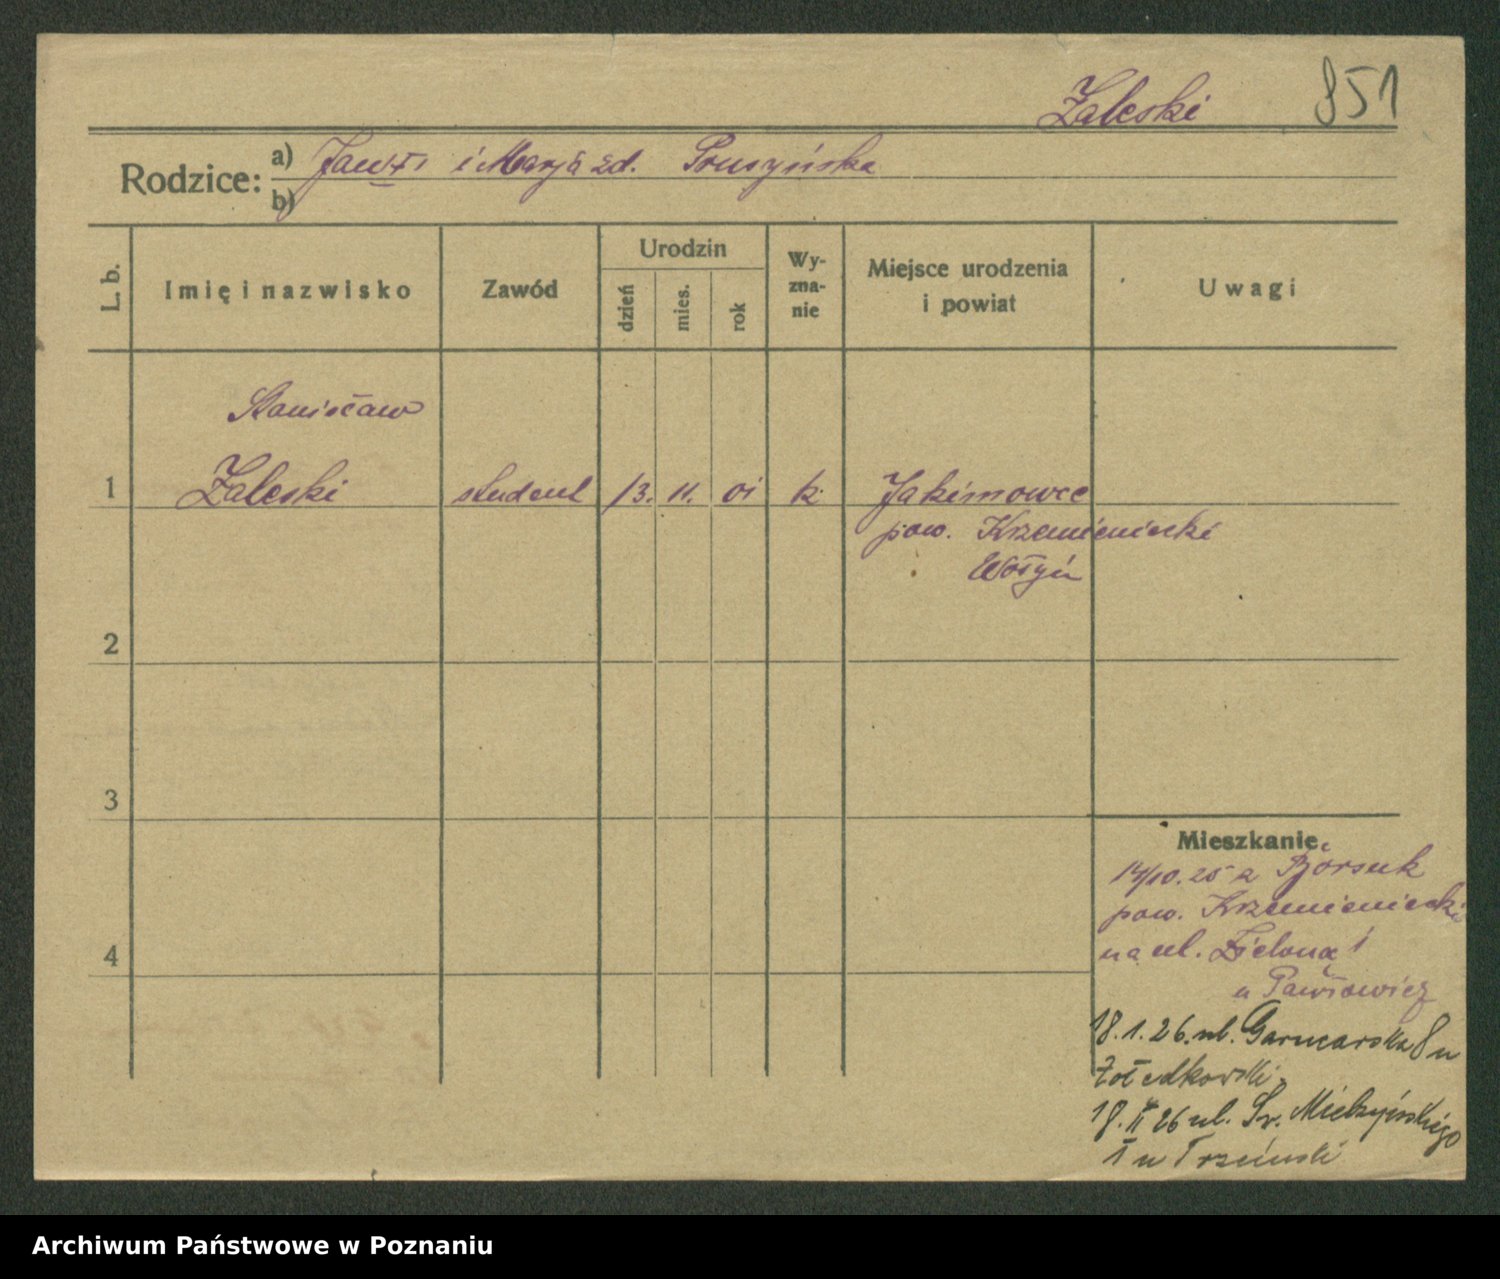 Zaleski 851
Rodzice: a) i Marja zd. Pruszyńska
b)
L. b. Imię i nazwisko Zawód Urodzin dzień mies. rok Wyznanie Miejsce urodzenia i powiat Uwagi
Stanisław
1 Zaleski student 13. 11. 01 k. Jakimowce
pow. Krzemieniecki
Wołyń
2
3
Mieszkanie
14/10.25 z Borsuk
pow. Krzemieniecki
4
na ul. Zielona 1
u Pawłowicz
18.1.26. ul. Garncarska 8 u
Żołedkowski.
18.II 26 ul. Sw. Mielżyńskiego
1 u Trzciński
Archiwum Państwowe w Poznaniu